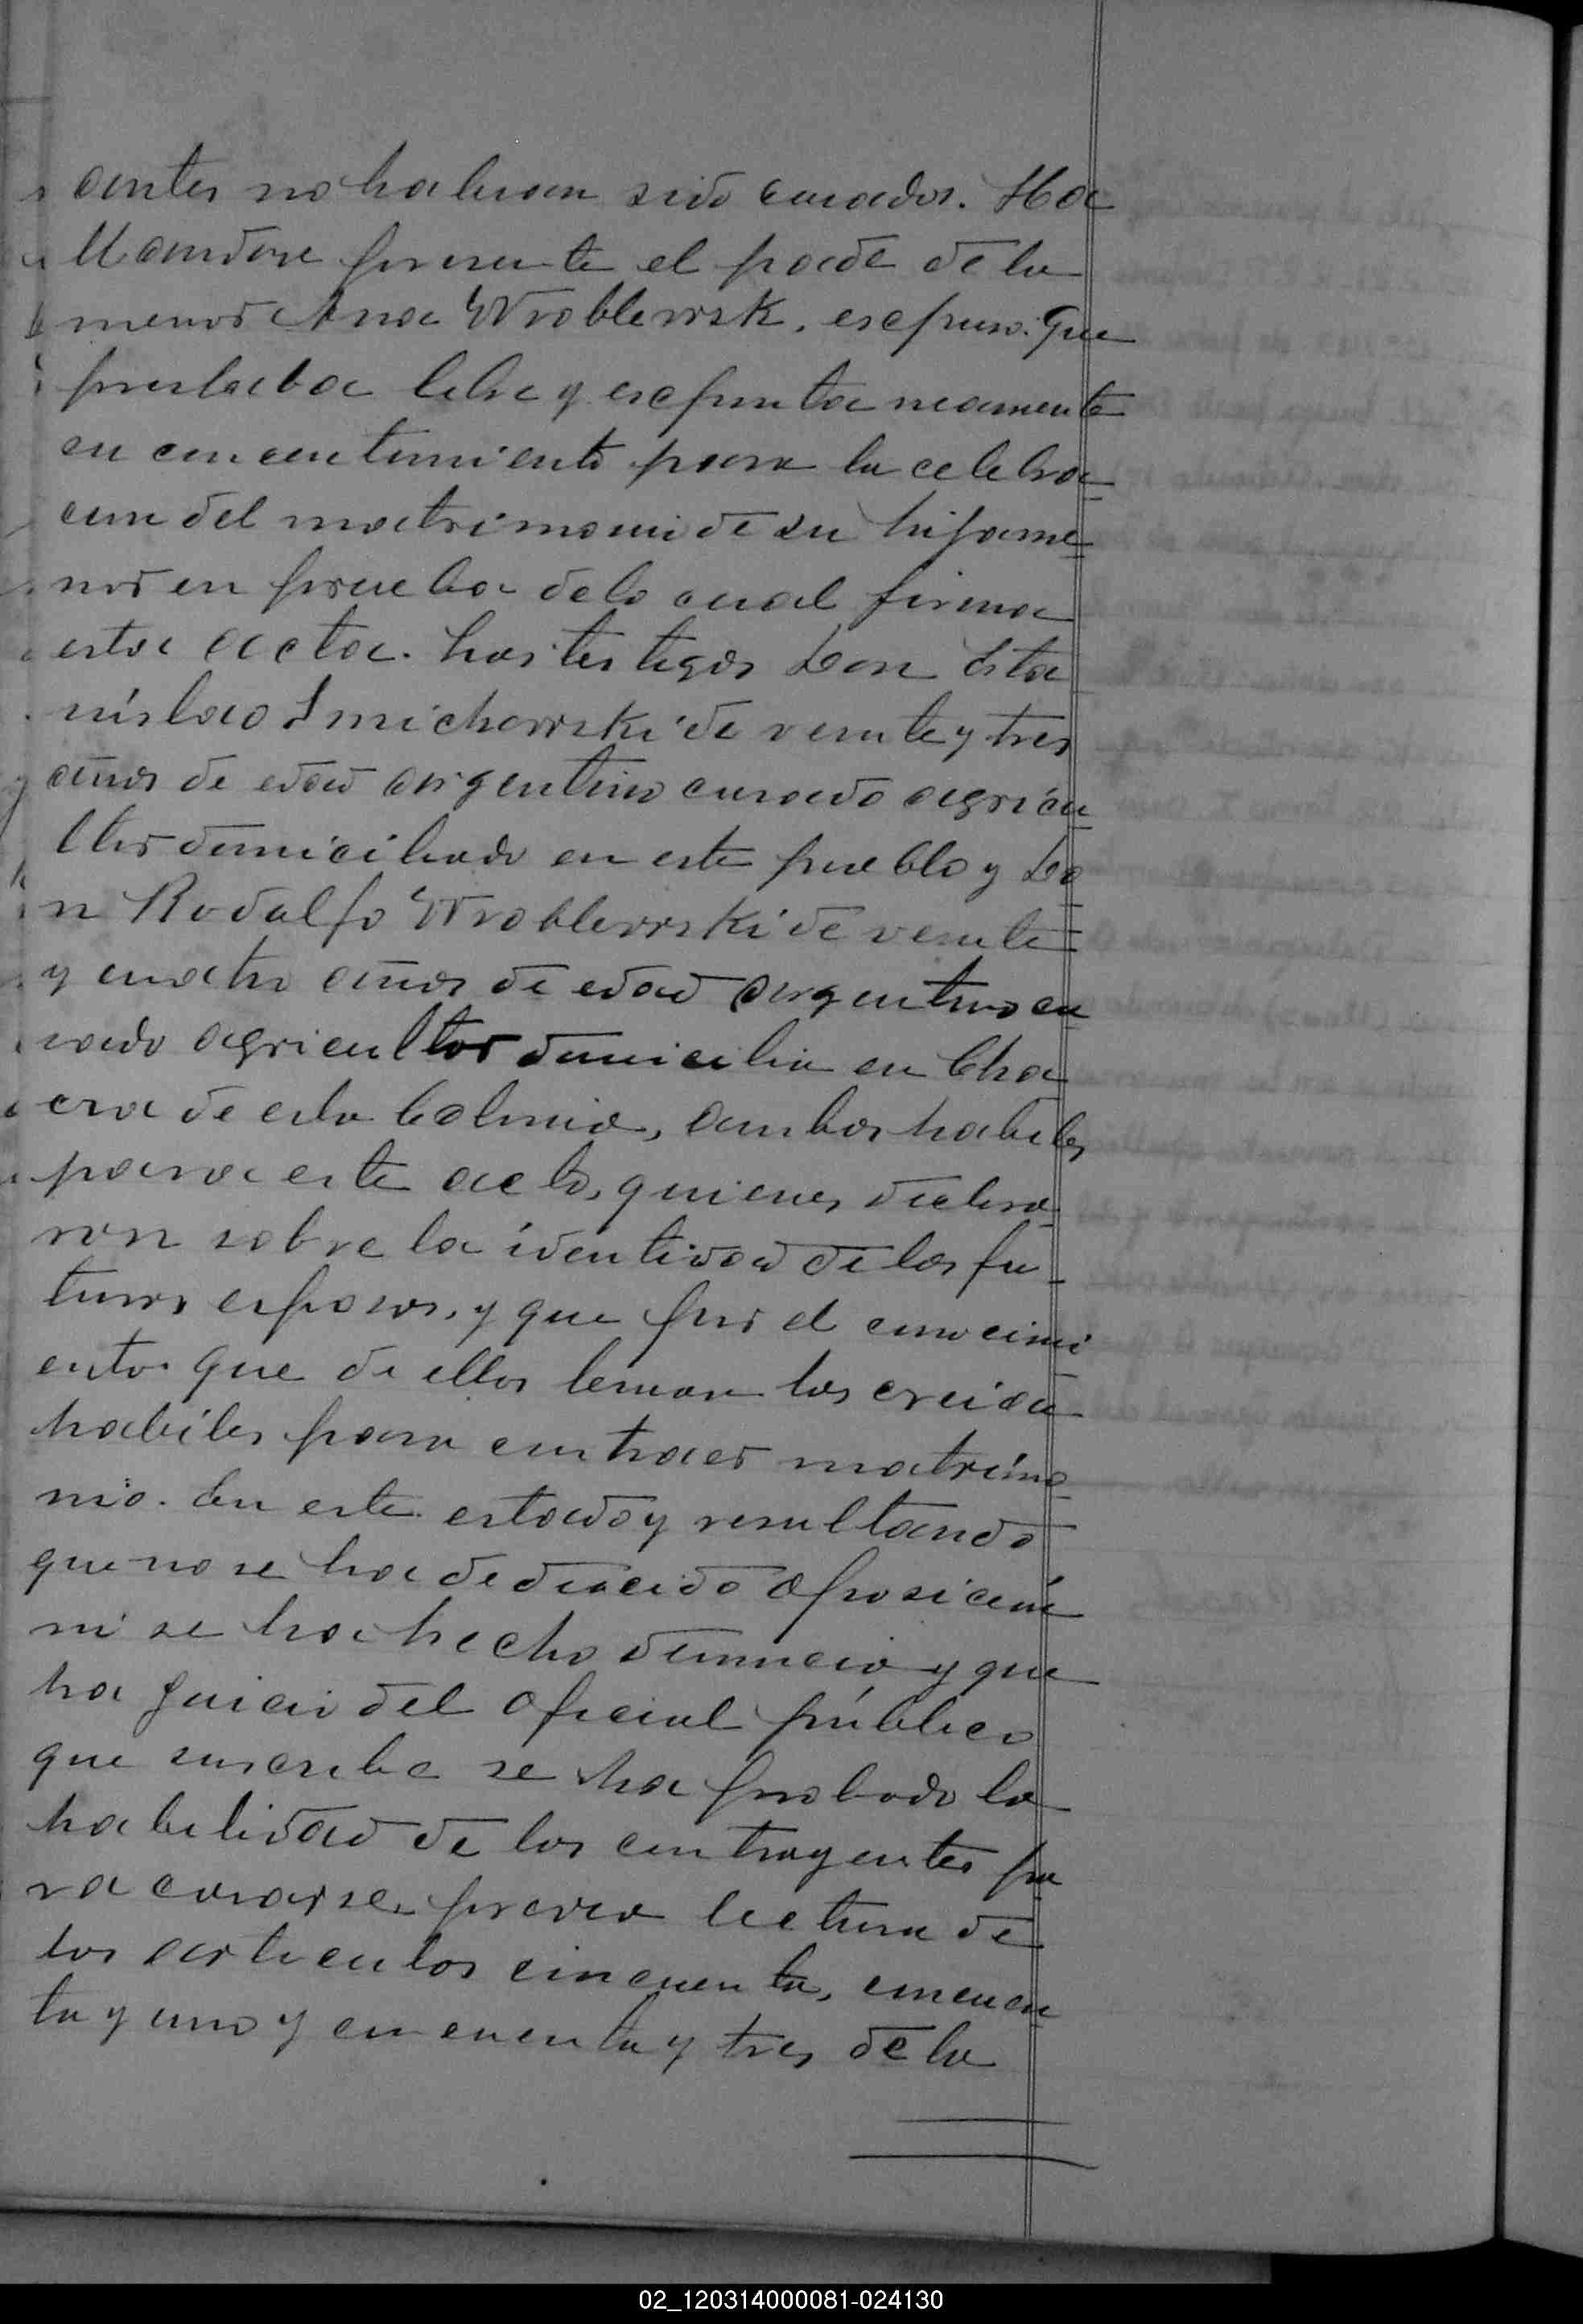 antes no habian sido casados. Ha
llandose presente el pade de la
menor Ana Wroblewsk, escpuso: Que
prestaba libre y escpontaneamente
su concentimiento para la celebra
cion del matrimonio de su hija me
nor en prueba de lo cual firma
esta acta. Los testigos Don Esta
nislao Smichowski de veinte y tres
años de edad argentino casado agricu
ltor domiciliado en este pueblo y Do
n Rodolfo Wroblewski de veinte
y cuatro años de edad argentino ca
sado agricultor domicilia en Cha
cra de esta Colonia, ambos habiles
para este acto, quienes declara
ron sobre la identidad de los fu-
turos esposos, y que por el conocimi
ento que de ellos tenian los creian
habiles para contraer matrimo
nio. En este estado y resultando
que no se ha deducido oposición
ni se ha hecho denuncia y que
ha juicio del oficial público
que suscribe se ha probado la
habilidad de los contrayentes pa
ra casarse, previa lectura de
los articulos cincuenta, cincuen
ta y uno y cincuenta y tres de la
02_120314000081-024130